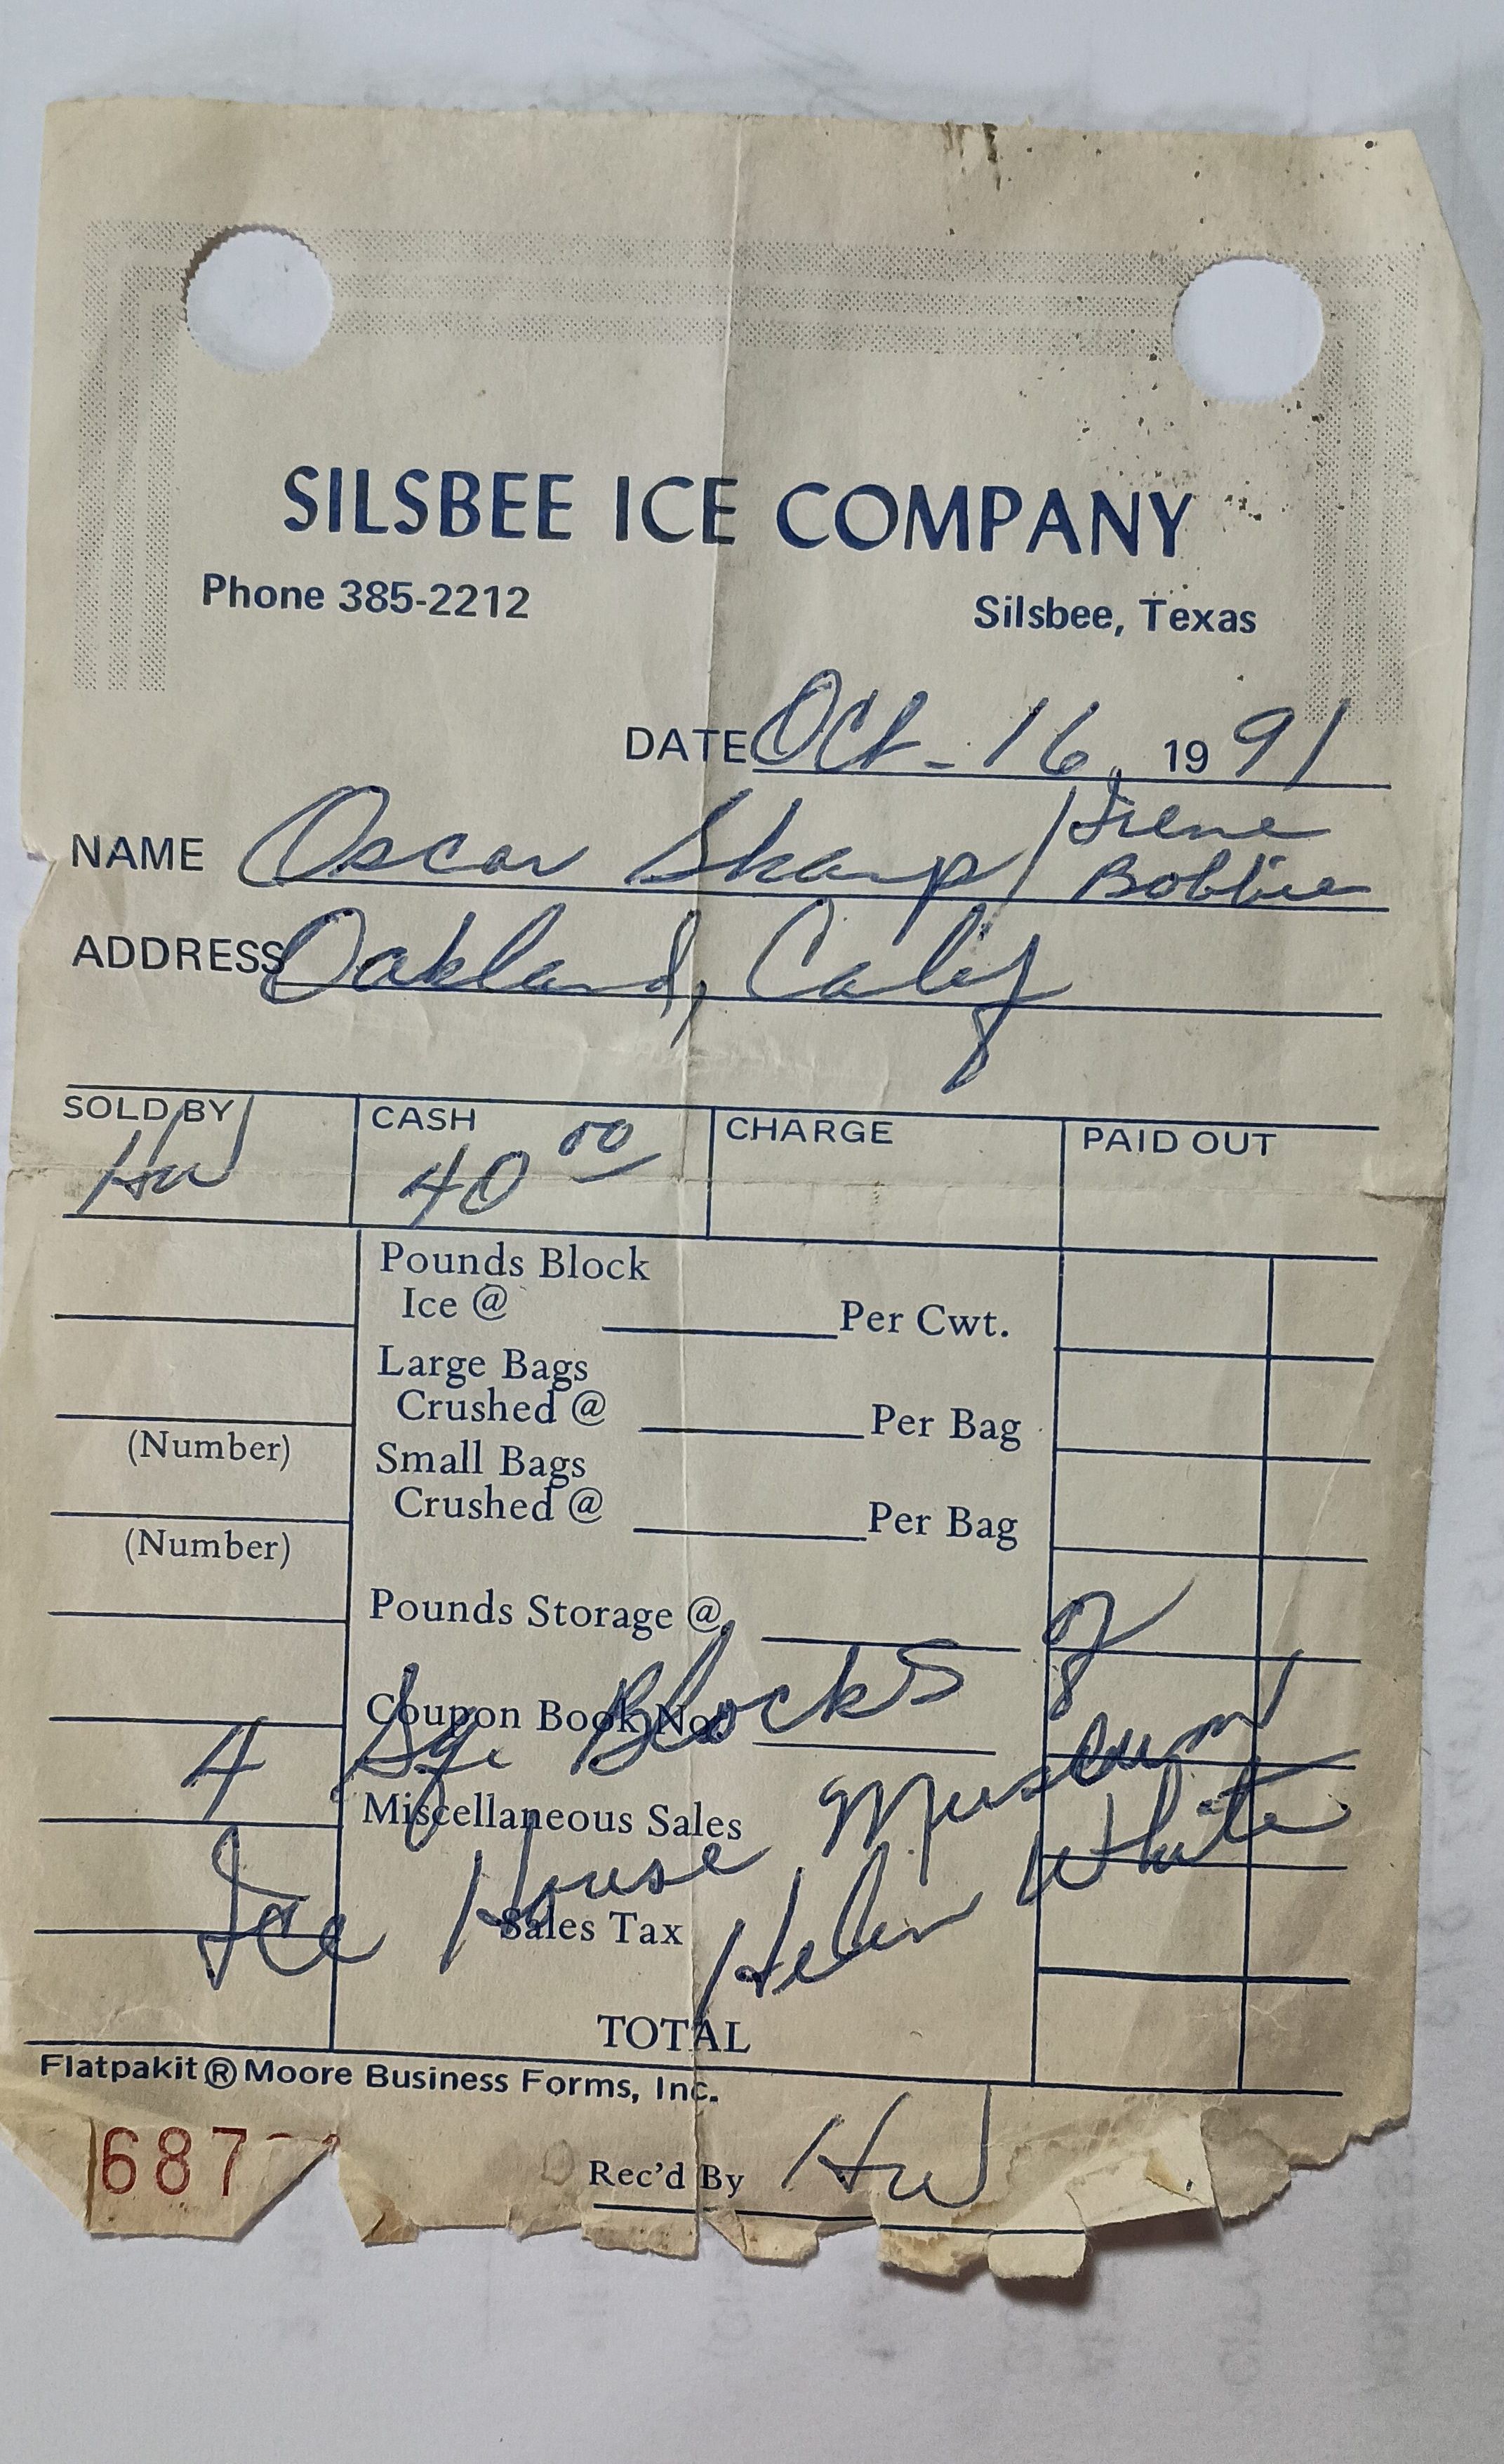 SILSBEE ICE COMPANY
Phone 385-2212 Silsbee, Texas
DATE Oct - 16, 1991
NAME Oscar Sharp / Irene
Bobbie
ADDRESS Oakland, Calif
SOLD BY CASH CHARGE PAID OUT
HW 40 00
Pounds Block
Ice @ Per Cwt.
Large Bags
Crushed @ Per Bag
(Number)
Small Bags
Crushed @ Per Bag
(Number)
Pounds Storage @
Coupon Book No.
4 Sq. Blocks
Miscellaneous Sales
Ice House Museum
Sales Tax
Helen White
TOTAL
Flatpakit® Moore Business Forms, Inc.
687
Rec'd By HW